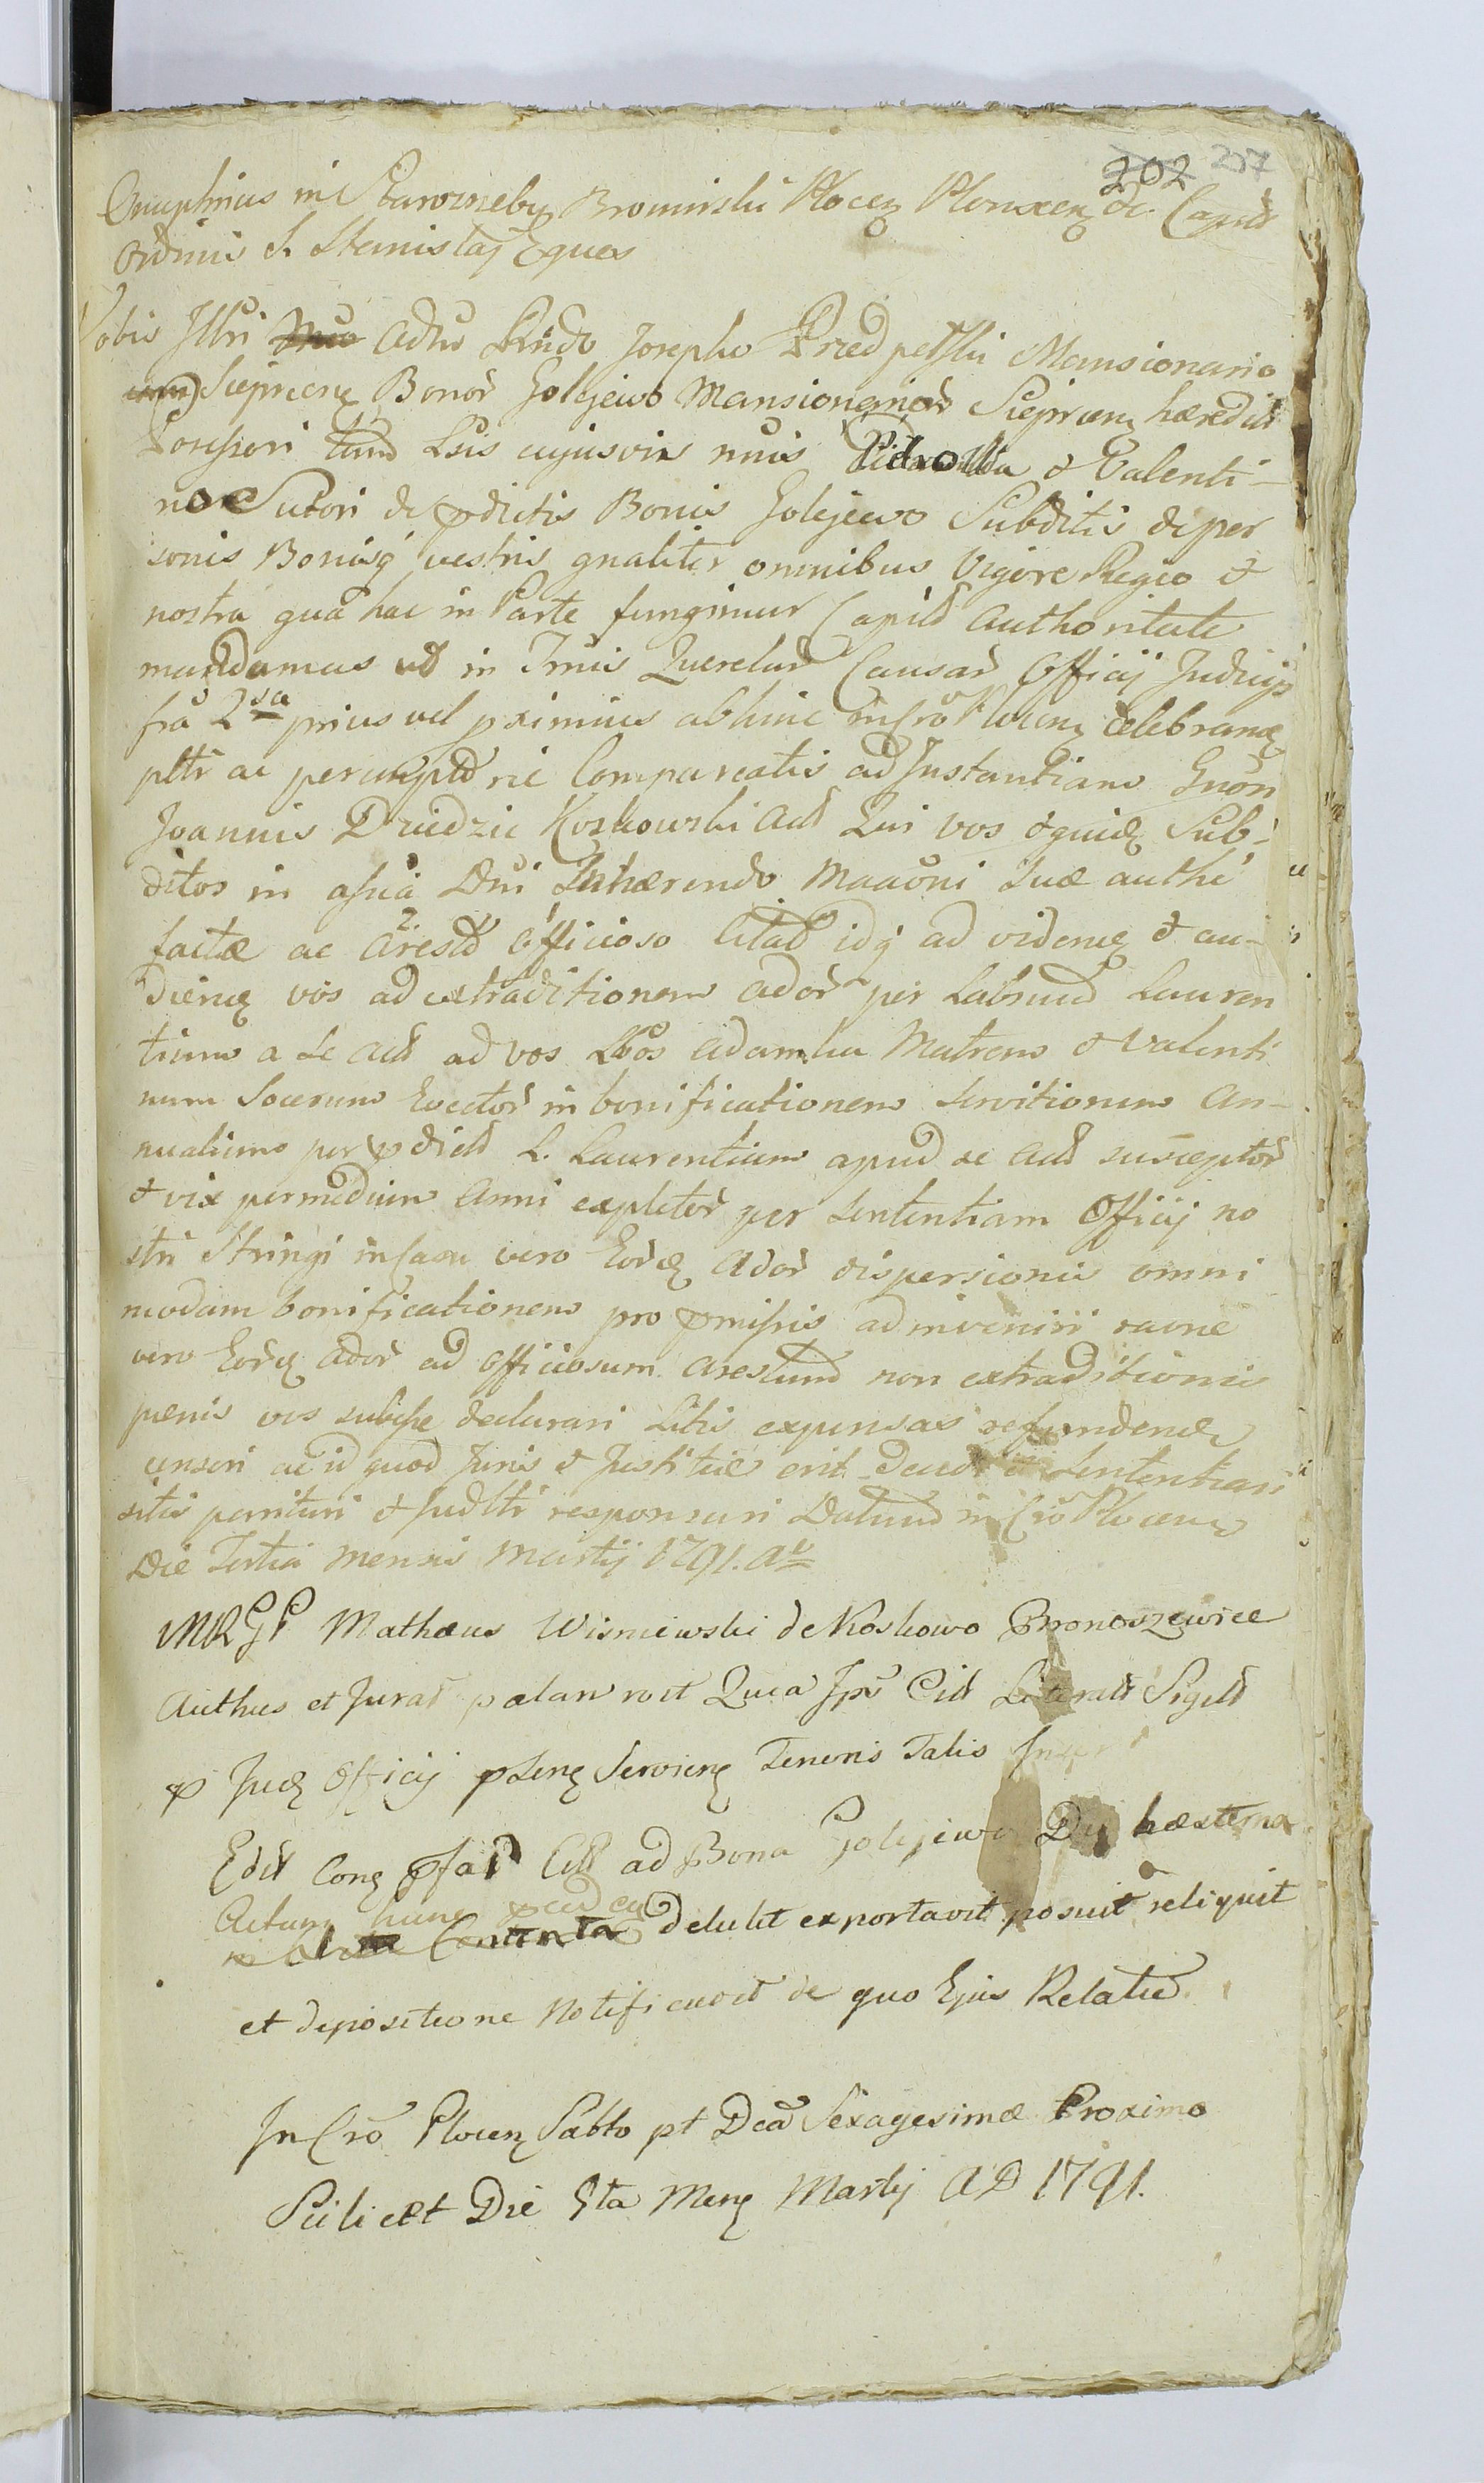 202 257
Onuphrius in Starozreby Bromirski Plocen Plonscen &c. Capits
Ordinis S. Stanislaj Eques
Vobis Illri Adm Rndo Josepho Przedpelski Mansionario
Sieprcen Bonor Golejewo Mansionarior Sieprcen hæredit
Possessori tum Lsis cujusvis nnis & Valenti-
no Sutori de prdictis Bonis Golejewo Subditis de per
sonis Bonisq vestris gnaliter omnibus Vigore Regio &
nostra qua hac in Parte fungimur Capitli Authoritate
mandamus ut in Tmis Querelar Causar Officij Judicij
fra 2da prius vel pximius abhinc in Cro Plocen celebran
pltr ac peremptorie Compareatis ad Instantiam Gnosi
Joannis Dziedzic Koskowski Act Qui vos & quid Sub-
ditos in assia Dni Inhærendo Maaoni suæ authe
factæ ac Arest officioso Citat idq ad viden & au-
dien vos ad extraditionem ador per Labrium Lauren
tium a se Act ad vos Lbos Adamka Matrem & Valenti
num Socerum Evector in bonificationem servitiorum An-
nualium per prdict L. Laurentium apud se Act susceptor
& vix per medium Anni expletor per sententiam Officij no
stri Stringi in Casu vero Eord Ador dispersionis omni
modam bonificationem pro prmissis adinveniri raone
vero Eord Ador ad officiosum arestum non extraditionis
pænis vos subesse declarari Litis expensas refunden
censeri ac id quod Juris & Justitiæ erit Sententiam
sitis parituri & Judltr responsuri Datum in Cro Plocen
Die Tertia mensis Martij 1791. Ao
MRGP Mathæus Wisniewski de Koskowo Bronoszewice
Authus et Jurat palam roit Quia Ips Cit Literalt Sigilt
pr Jud Officij psen Servien Tenoris Talis
Edit Con pfat Citt ad Bona Golejewo Die hesterna
Actum hunc detulit exportavit posuit reliquit
et depositione notificavit de quo Ejus Relatio
In Cro Plocen Sabto pt Dcã Sexagesimæ Proximo
Scilicet Die 5ta Men Martij AD 1791.